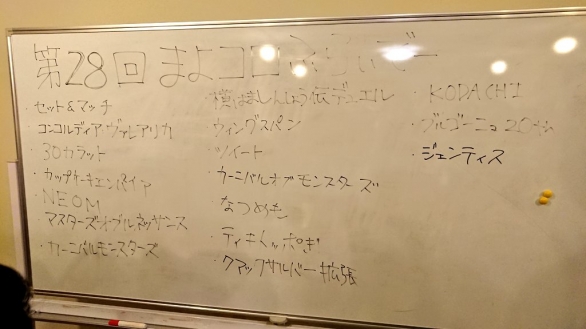 第28回 まよコロ
・セット&マッチ
・コンコルディア ヴァレアリカ
・30カラット
・カップケーキエンパイア
・NEOM
・マスターズオブルネッサンス
・カーニバルモンスターズ
・ウィングスパン
・ツイート
・カーニバルオブモンスターズ
・なつめも
・クマックサルバー拡張
・KODACHI
・ブルゴーニュ20th
・ジェンティス